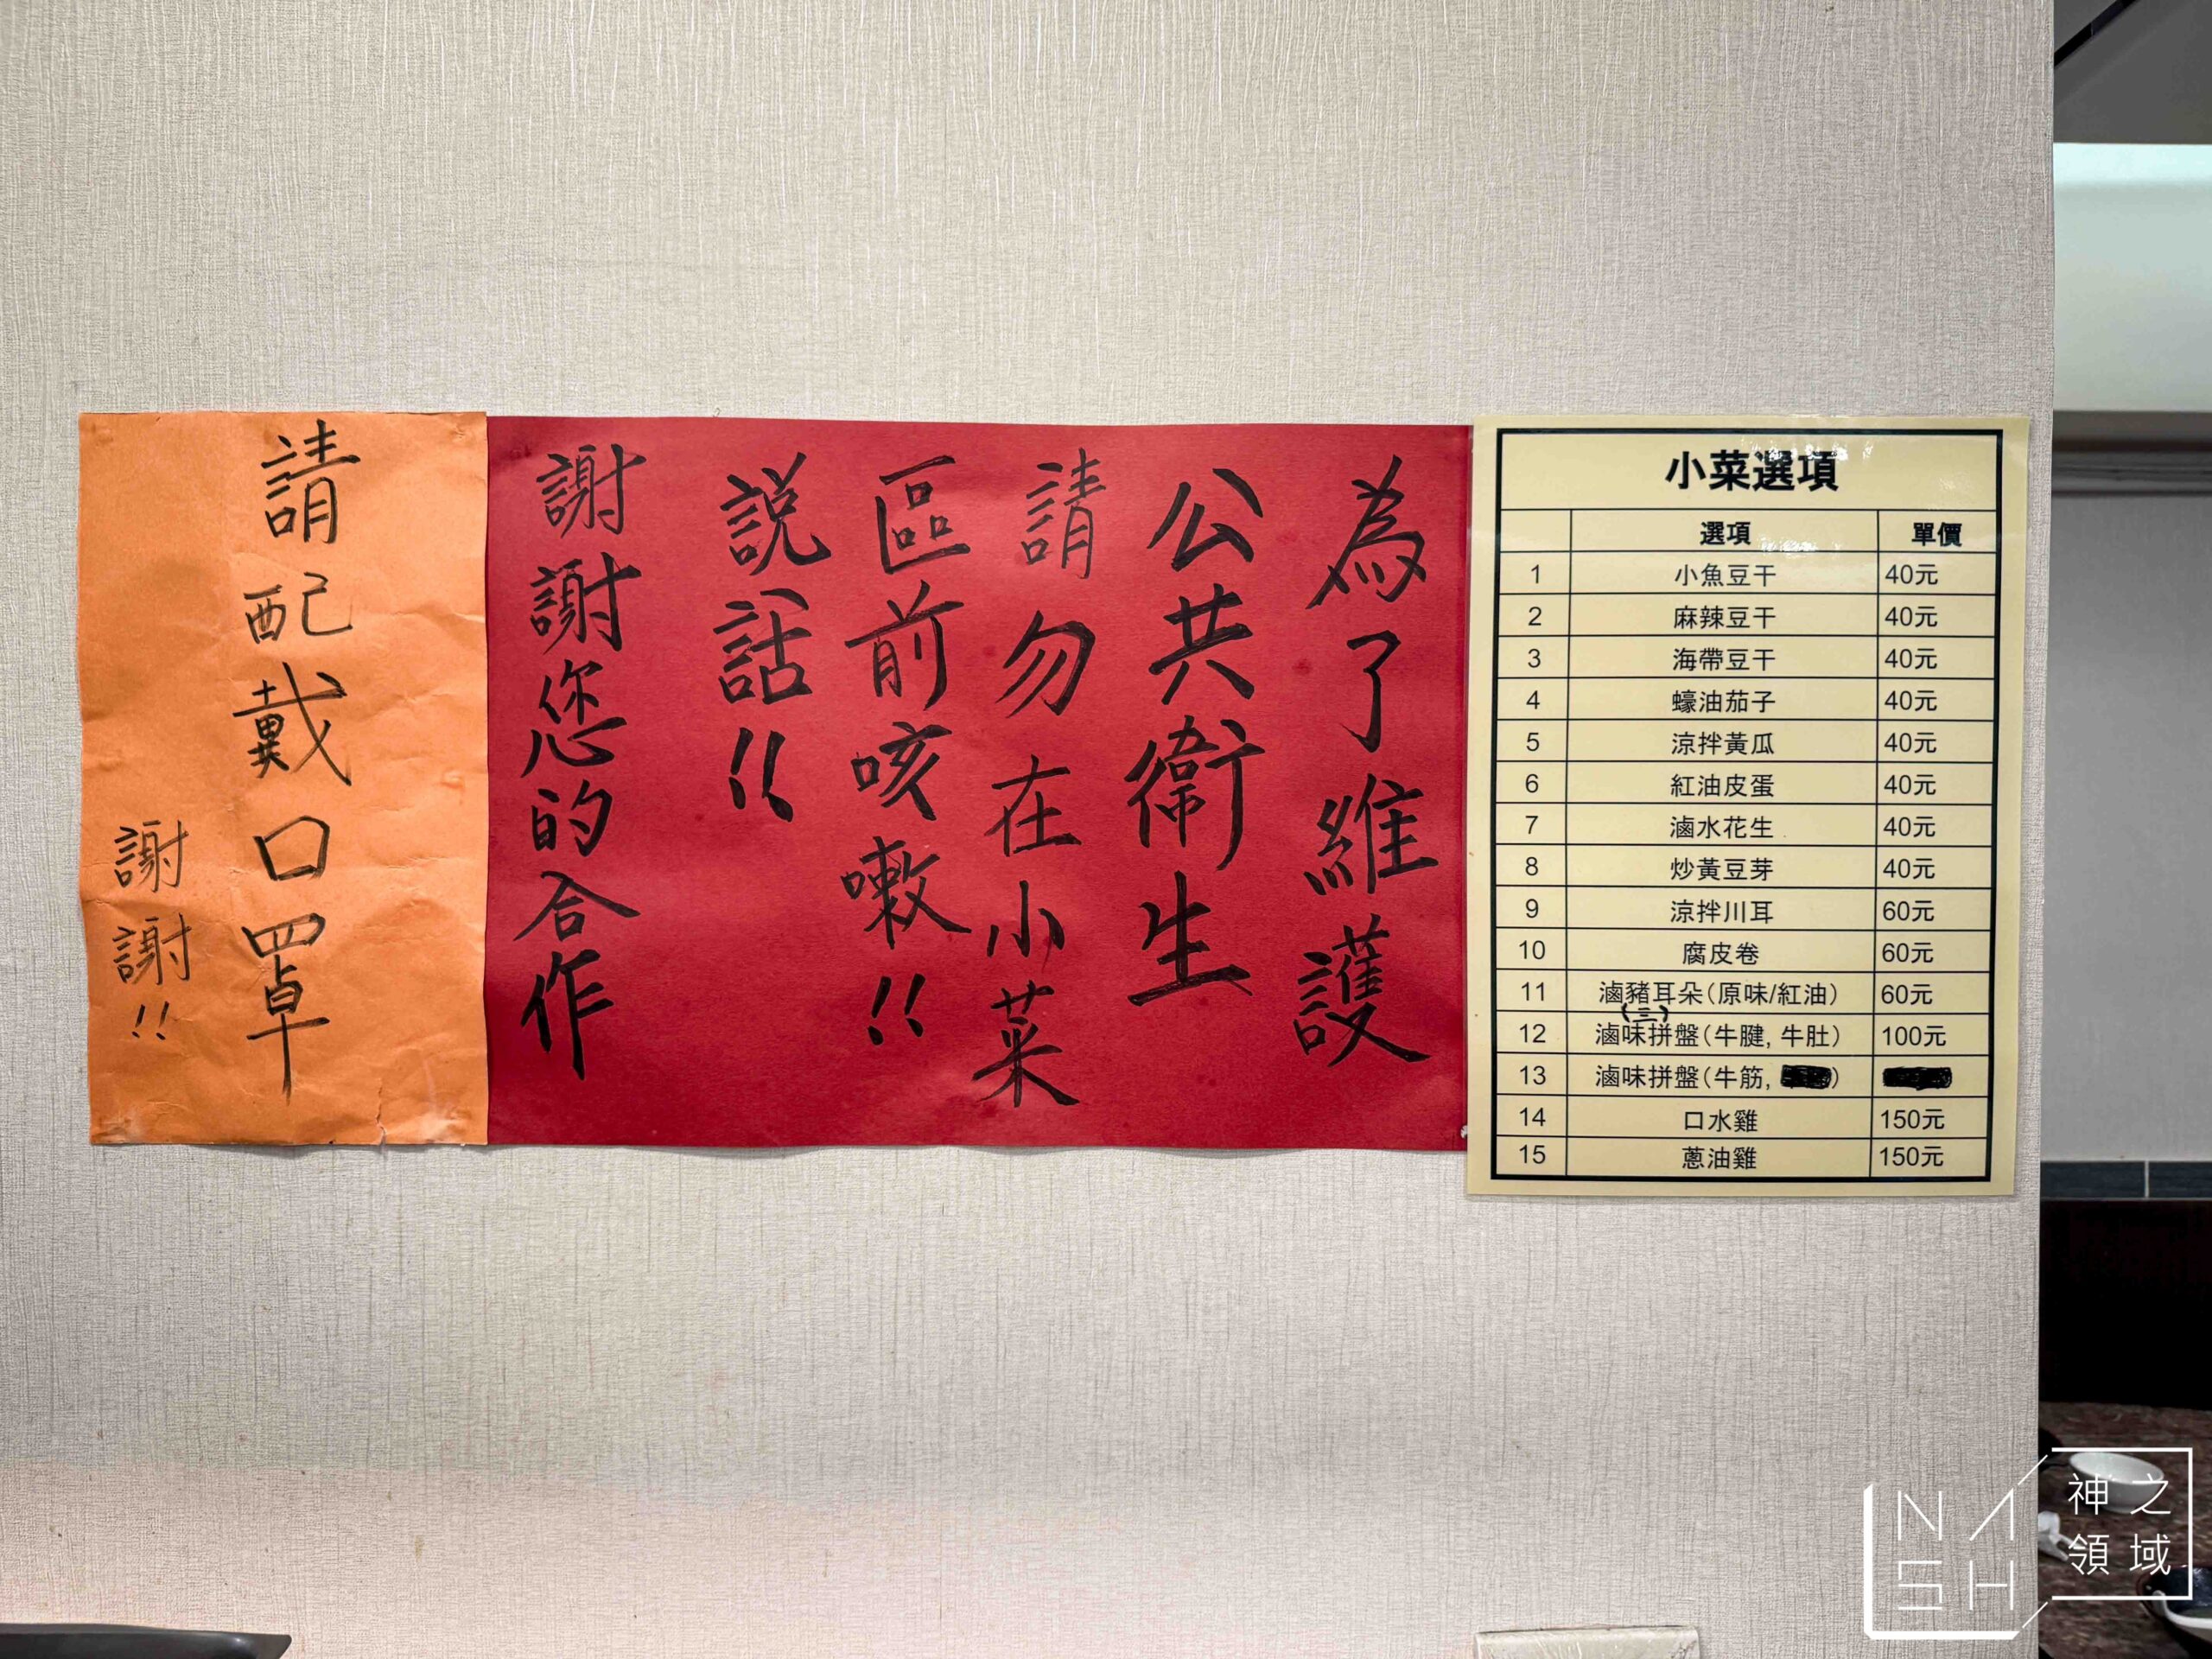 為了維護
公共衛生
請勿在小菜
區前咳嗽!!
説話!!
謝謝您的合作
請配戴口罩
謝謝!!
小菜選項
選項 單價
1 小魚豆干 40元
2 麻辣豆干 40元
3 海帶豆干 40元
4 蠔油茄子 40元
5 涼拌黃瓜 40元
6 紅油皮蛋 40元
7 滷水花生 40元
8 炒黃豆芽 40元
9 涼拌川耳 60元
10 腐皮卷 60元
11 滷豬耳朵(原味/紅油) 60元
(三)
12 滷味拼盤(牛腱, 牛肚) 100元
13 滷味拼盤(牛筋, )
14 口水雞 150元
15 蔥油雞 150元
NASH
神之領域